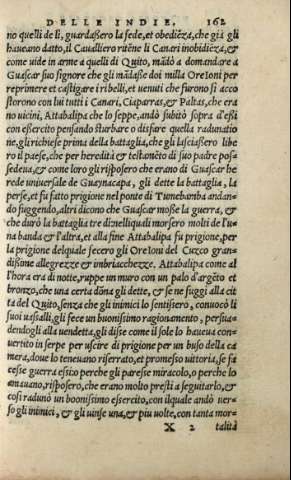 DELLE INDIE. 162
no quelli de li, guardaßero la fede, et obediẽza, che già gli
haueano datto, il Caualliero ritẽne li Canari inobidiẽza, &
come uide in arme a quelli di Quito, mãdò a domandare a
Guascar suo signore che gli mãdaße doi milla OreIoni per
reprimere et castigare i ribelli, et uenuti che furono si acco
storono con lui tutti i Canari, Ciaparras, & Paltas, che era
no uicini, Attabalipa che lo seppe, andò subitò sopra d'eßi
con eßercito pensando sturbare o disfare quella radunatio
ne, gli richiese prima della battaglia, che gli lasciaßero libe
ro il paese, che per heredità & testamẽto di suo padre pos-
sedeua, & come loro gli rispòsero che erano di Guascar he
rede uniuersale de Guaynacapa, gli dette la battaglia, la
perse, et fu fatto prigione nel ponte di Tumebamba andan-
do fuggendo, altri dicono che Guascar moße la guerra, &
che durò la battaglia tre dì nelliquali morsero molti de l'u
na banda & l'altra, et alla fine Attabalipa fu prigione, per
la prigione delquale fecero gli OreIoni del Cuzco gran-
dißime allegrezze & imbriacchezze. Attabalipa come al
l'hora era di notte, ruppe un muro con un palo d'argẽto et
bronzo, che una certa dõna gli dette, & se ne fuggì alla cit
tà del Quito, senza che gli inimici lo sentißero, conuocò li
suoi uassalli, gli fece un boonißimo ragionamento, persua-
dendogli alla uendetta, gli diße come il sole lo haueua con-
uertito in serpe per uscire di prigione per un buso della ca
mera, doue lo teneuano riserrato, et promesso uittoria, se fa
ceße guerra eßi, o perche gli pareße miracolo, o perche lo
amauano, risposero, che erano molto presti a seguitarlo, &
così radunò un boonißimo eßercito, con ilquale andò uer-
so gli inimici, & gli uinse una, & piu uolte, con tanta mor-
X 2 talità